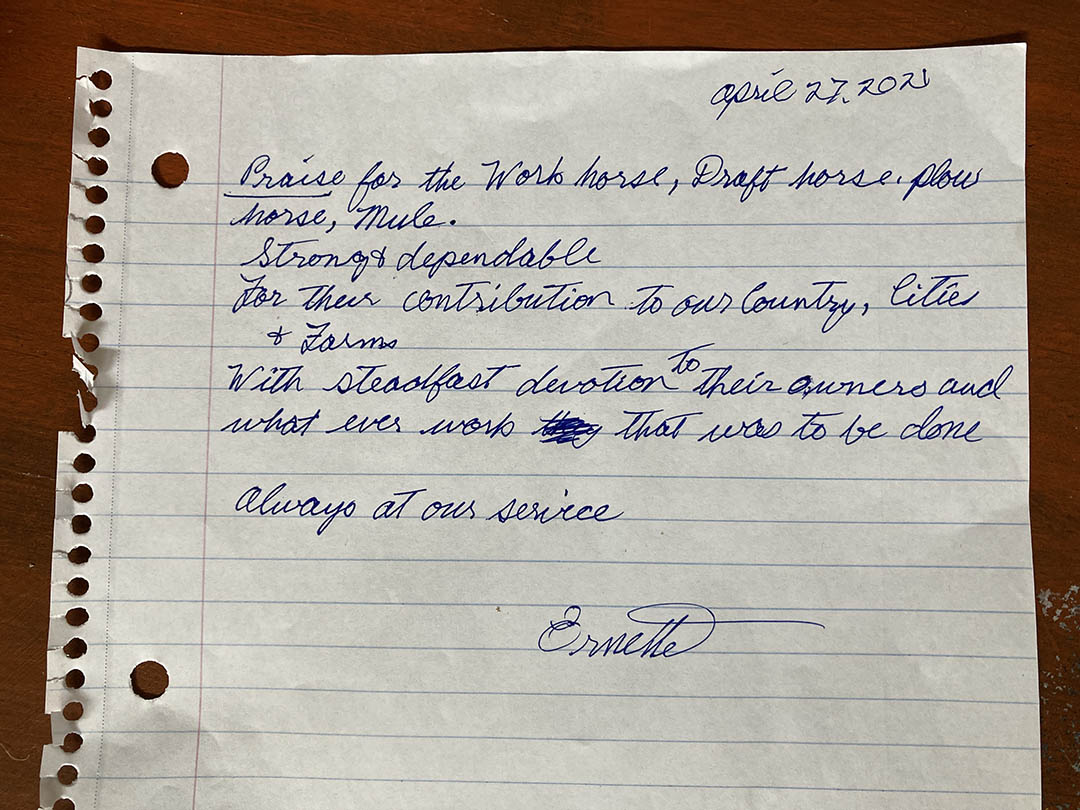 April 27, 2021
Praise for the Work horse, Draft horse. plow
horse, Mule.
Strong & dependable
For their contribution to our Country, Cities
& Farms
With steadfast devotion to their owners and
what ever work that was to be done
Always at our service
Ernette